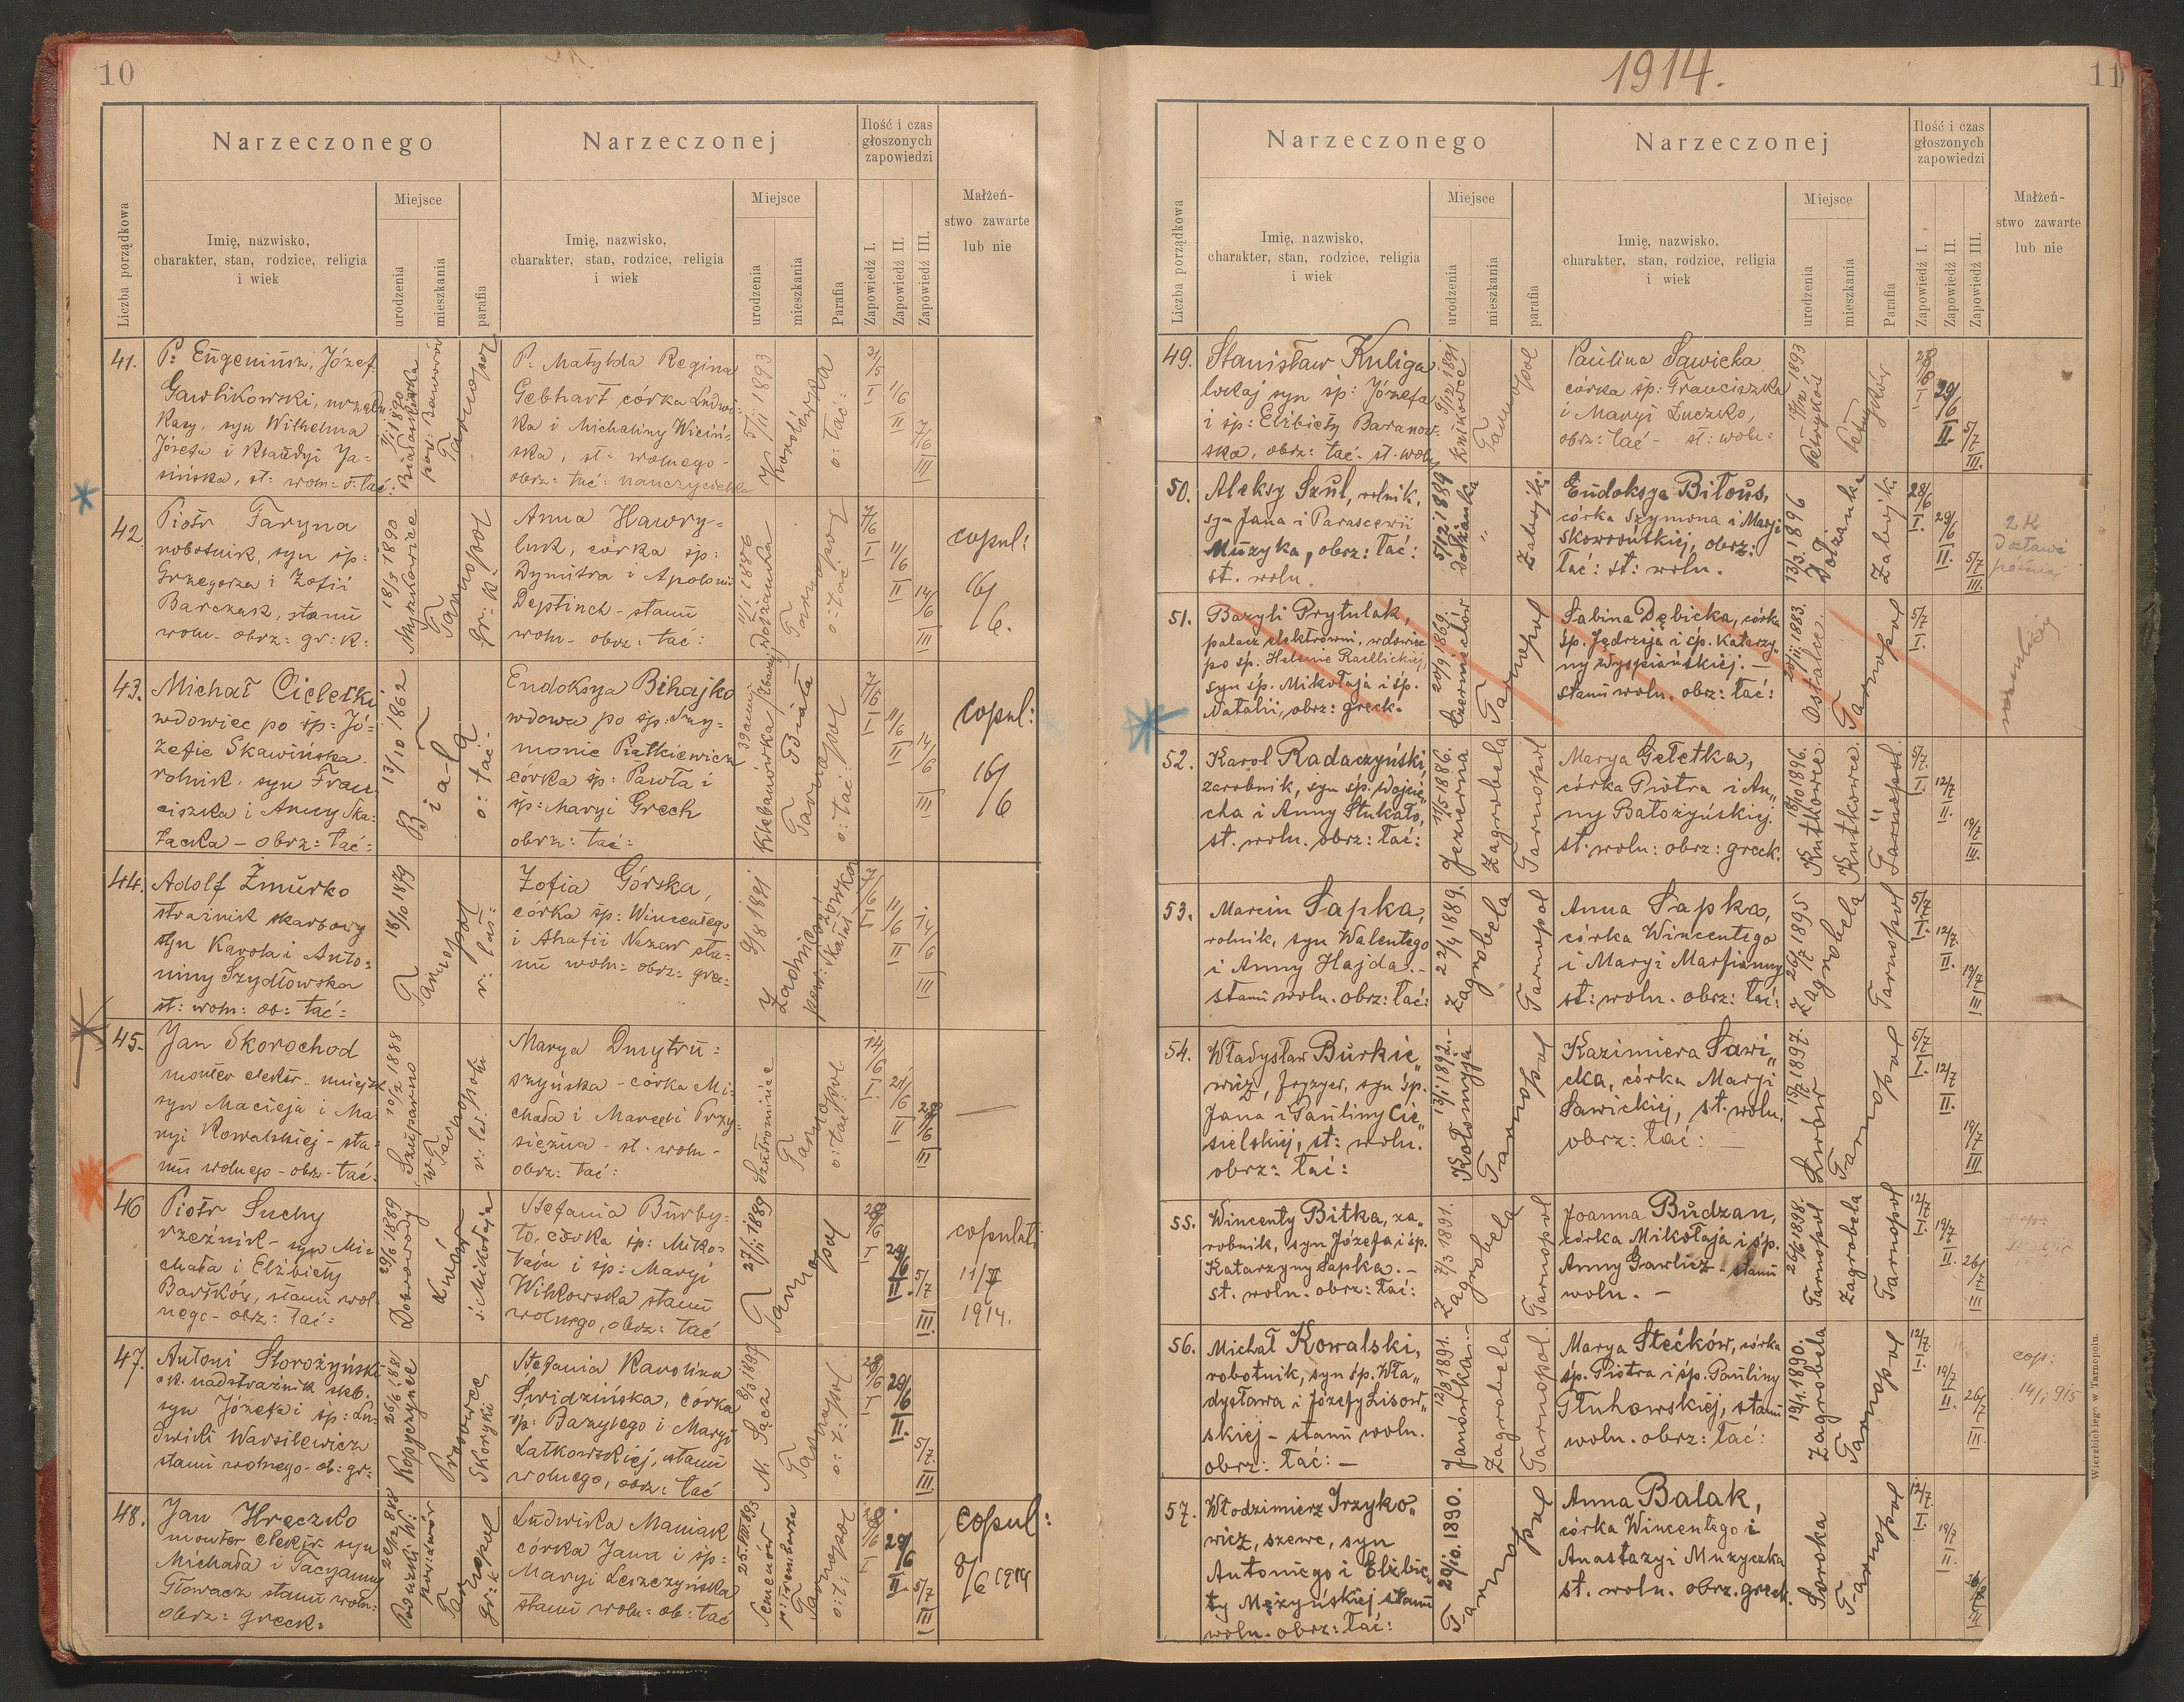 10
Narzeczonego
Narzeczonej
Ilość i czas
głoszonych
zapowiedzi
Liczba porządkowa
Imię, nazwisko,
charakter, stan, rodzice, religia
i wiek
Miejsce
urodzenia
mieszkania
parafia
Imię, nazwisko,
charakter, stan, rodzice, religia
i wiek
Miejsce
urodzenia
mieszkania
Parafia
Zapowiedź I.
Zapowiedź II.
Zapowiedź III.
Małżeń-
stwo zawarte
lub nie
41.
P: Eugeniusz, Józef
Gawlikowski,
Kasy, syn Wilhelma
Józefa i Klaudyi Ja=
sińska, st: woln= o: łać:
Tarnopol
P. Matylda Regina
Gebhart córka Ludwi=
ka i Michaliny Wiciń=
ska, st= wolnego-
obrz: łać= nauczycielka
5/11 1893
Korolówka
o: łać:
31/5 I
1/6 II
7/6 III
42.
Piotr Faryna
robotnik, syn śp:
Grzegorza i Zofii
Barczak, stanu
woln- obrz: gr: k:
18/5 1890
Myszkowice
Tarnopol
gr-k:
Anna Hawry=
luk, córka śp:
Dymitra i Apolonii
Deptinch- stanu
woln- obrz: łać:
11/1 1886
Tarnopol
o: łać
7/6 I
11/6 II
14/6 III
copul:
16/6.
43.
Michał Cielecki
wdowiec po śp: Jó=
zefie Skawińska.
rolnik. syn Fran
ciszka i Anny Ska=
łacka - obrz: łać:
13/10 1862
Biała
o: łać-
Eudoksya Bihajko
wdowa po śp: Szy-
monie Piątkiewicz
córka śp: Pawła i
śp: Maryi Grech
obrz: łać:
Klebanówka
Biała
Tarnopol
o: łać:
7/6 I
11/6 II
14/6 III
copul:
16/6
44.
Adolf Żmurko
strażnik skarbowy
syn Karola i Anto=
niny Szydłowska
st: woln: ob: łać=
18/10 1879
Tarnopol
Zofia Górska,
córka śp: Wincentego
i Ahafii Nazar sta=
nu woln= obrz= grec=
9/8 1891
7/6 I
11/6 II
14/6 III
45.
Jan Skorochod
monter elektr-
syn Macieja i Ma
ryi Kowalskiej - sta=
nu wolnego - obrz- łać:
10/2 1888
Szuparno
Tarnopol
Marya Dmytru=
szyńska - córka Mi
chała i Maryi Przy
siężna - st. woln-
obrz: łać:
Tarnopol
14/6 I
21/6 II
28/6 III
46
Piotr Suchy
rzeźnik- syn Mi=
chała i Elżbiety
Barsków, stanu wol
nego- obrz: łać=
29/6 1889
Dobrowody
Lwów
ś: Mikołaja
Stefania Burby=
to, córka śp: Miko=
łaja i śp: Maryi
Witkowska stanu
wolnego, obrz: łać
27/11 1889
Tarnopol
28/6 I
29/6 II.
5/7 III.
copulati
11/7
1914.
47.
Antoni Storożyński
ck. nadstrażnik skb.
syn Józefa i śp: Lu=
dwiki Wasilewicz
stanu wolnego- ob: gr:
Kopyczyńce
Skoryki
Stefania Karolina
Świdzińska, córka
śp: Bazylego i Maryi
Latkowskiej, stanu
wolnego, obrz: łać
9/3 1897
N. Sącz
Tarnopol.
28/6 I
29/6 II.
5/7 III.
48.
Jan Hręczko
monter elektr. syn
Michała i Tacyanny
Głowacz stanu woln:
obrz: greck:
Tarnopol
gr: k
Ludwika Maniak
córka Jana i śp=
Maryi Leszczyńska
stanu woln= ob: łać
25.III.893
Semenów
p: Trembowla
Tarnopol
28/6 I
29/6 II.
5/7 III
copul:
8/6 1914
1914.
11
Narzeczonego
Narzeczonej
Ilość i czas
głoszonych
zapowiedzi
Liczba porządkowa
Imię, nazwisko,
charakter, stan, rodzice, religia
i wiek
Miejsce
urodzenia
mieszkania
parafia
Imię, nazwisko,
charakter, stan, rodzice, religia
i wiek
Miejsce
urodzenia
mieszkania
Parafia
Zapowiedź I.
Zapowiedź II.
Zapowiedź III.
Małżeń-
stwo zawarte
lub nie
49.
Stanisław Kuliga
lokaj syn śp: Józefa
i śp: Elżbiety Baranow-
ska, obrz: łać- st. woln
9/12 1891
Tarnopol
Paulina Sawicka
córka śp: Franciszka
i Maryi Łuczko,
obrz: łać- st: woln=
17/12 1893
Petryków
Petryków
28/6 I
29/6 II.
5/7 III.
50.
Aleksy Szul, rolnik,
syn Jana i Parascewii
Muzyka, obrz: łać:
st. woln.
5/12 1889
Dołżanka
"
Zabojki
Eudoksya Biłous,
córka Szymona i Maryi
Skowrońskiej, obrz:
łać: st: woln.
13/3. 1896
Dołżanka
Zabojki
28/6 I.
29/6 II.
5/7 III.
2 K
Dostawi
później
51.
Bazyli Prytulak,
palacz elektrowni, wdowiec
po śp. Helenie Raellickiej,
syn śp. Mikołaja i śp.
Natalii, obrz: greck.
20/9 1869.
Czernielów
Tarnopol
Sabina Dębicka, córka
śp. Jędrzeja i śp. Katarzy„
ny Wyspiańskiej. —
stanu woln. obrz: łać:
20/11 1883.
Ostalce.
Tarnopol
5/7 I.
52.
Karol Radaczyński
zarobnik, syn śp. Wojcie„
cha i Anny Stukało,
st. woln. obrz: łać:
11/5 1886.
Jezierna
Zagrobela
Tarnopol
Marya Gełetka,
córka Piotra i An„
ny Bałożyńskiej.
st. woln: obrz: greck.
18/10 1896.
Kutkowce.
Kutkowce.
Tarnopol.
5/7. I.
12/7. II.
19/7 III.
53.
Marcin Sapka,
rolnik, syn Walentego
i Anny Hajda. -
stanu woln. obrz: łać:
22/4 1889.
Zagrobela
Tarnopol
Anna Sapka,
córka Wincentego
i Maryi Marfianny
st: woln. obrz: łać:
26/7 1895
Zagrobela
Tarnopol
5/7 I.
12/7. II.
19/7 III
54.
Władysław Burkie„
wicz, fryzyer, syn śp.
Jana i Pauliny Cie„
sielskiej, st: woln.
obrz: łać:
13/1 1892.-
Kołomyja
Tarnopol
Kazimiera Sawi„
cka, córka Maryi
Sawickiej, st. woln.
obrz: łać: —
15/7 1897.
Lwów
Tarnopol
5/7 I.
12/7 II.
19/7 III
55.
Wincenty Bitka, za„
robnik, syn Józefa i śp.
Katarzyny Sapka. -
st. woln. obrz: łać:
7/3 1891.
Zagrobela
Tarnopol
Joanna Budzan,
córka Mikołaja i śp.
Anny Gawlicz - stanu
woln. -
26/6 1898.
Tarnopol
Zagrobela
Tarnopol
12/7 I.
19/7 II.
26/7 III
56.
Michał Kowalski,
robotnik, syn śp. Wła„
dysława i Józefy Lisow„
skiej - stanu woln.
obrz: łać: —
12/9 1891.
Janówka.-
Zagrobela
Tarnopol.
Marya Stećków, córka
śp. Piotra i śp. Pauliny
Głuhowskiej, stanu
woln. obrz: łać:
19/1. 1890.
Zagrobela
Tarnopol
12/7. I.
19/7 II
26/7 III.
cop:
14/1 915
57.
Włodzimierz Irzyko„
wicz, szewc, syn
Antoniego i Elżbie„
ty Mężyńskiej stanu
woln. obrz: łać:
20/10. 1890.
Tarnopol
Anna Balak,
córka Wincentego i
Anastazyi Muzyczka
st. woln. obrz. greck.
Soroka
Tarnopol
12/7. I.
19/7 II.
26/7 III
Wierzbickiego w Tarnopolu.